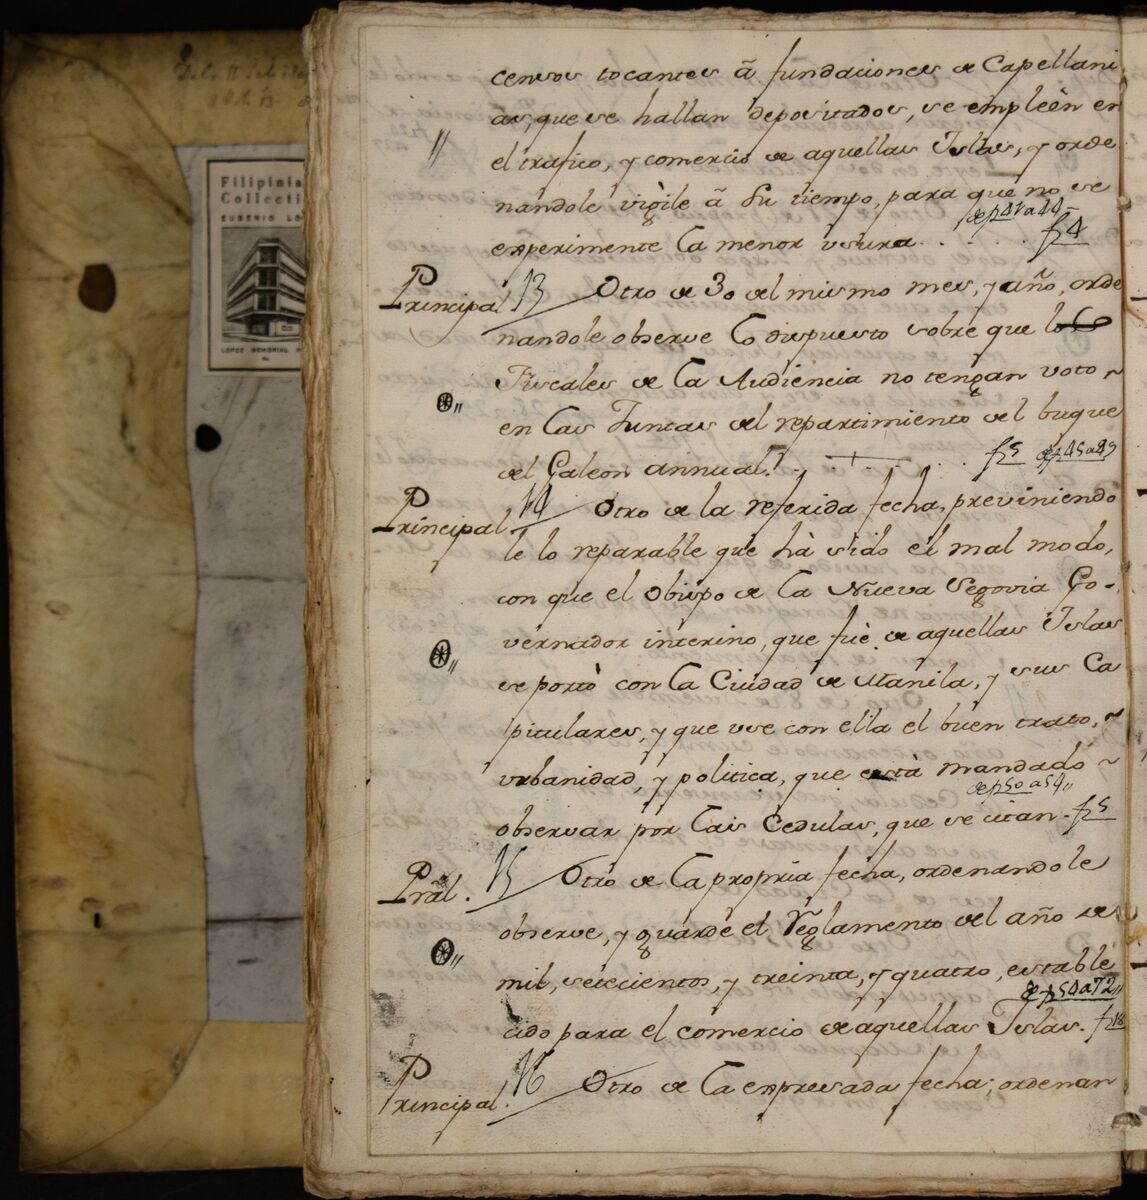 Filipinia
Collecti
EUGENIO LO
LOPEZ MEMORIAL M
censos tocantes â fundaciones de Capellani
as, que se hallan depositados, se empleèn en
el trafico, y comercio de aquellas Yslas, y orde
nandole vigile â su tiempo, para que no se
de f 41 a 44
experimente la menor usura . . . . . f 4
Principal 13 Otro de 30 del mismo mes, y año, orde
nandole observe lo dispuesto sobre que los
Fiscales de la Audiencia no tengan voto
en las Juntas del repartimiento del buque
del Galeon annual. . . f 5 de f 45 a 49
Principal 14 Otro de la referida fecha, previniendo
le lo reparable que hà sido el mal modo,
con que el Obispo de la Nueva Segovia Go-
vernador interino, que fuè de aquellas Yslas
se portò con la Ciudad de Manila, y sus Ca
pitulares, y que use con ella el buen trato,
urbanidad, y politica, que està mandado
de f 50 a 54
observar por las Cedulas, que se citan. f 5
Pral. 15 Otro de la propria fecha, ordenandole
observe, y guarde el Reglamento del año de
mil, setecientos, y treinta, y quatro, estable
de f 54 a 72
cido para el comercio de aquellas Yslas. f 18
Principal. 16 Otro de la expresada fecha, ordenan